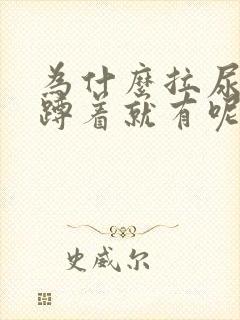 为什麽拉尿
蹲着就有呢
史威尔